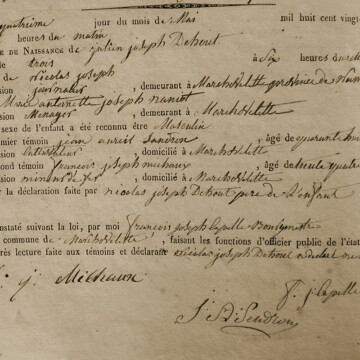 quatrième jour du mois de Mai mil huit cent vingt
heures du matin
E DE NAISSANCE de julien joseph Dehout
le trois à Six heures du
de Nicolas joseph
sion journalier, demeurant à Marchovelette province de Namur
Marie antoinette joseph
sion Menager demeurant à Marchovelette
sexe de l'enfant a été reconnu être Masculin
mier témoin jean âgé de quarante
sion domicilié à Marchovelette
ond témoin francois joseph michaux, âgé de trente quatre
sion domicilié à Marchovelette
r la déclaration faite par nicolas joseph Dehout pere de L'enfant
nstaté suivant la loi, par moi francois joseph Capelle Bourgmestre
commune de Marchovelette, faisant les fonctions d'officier public de l'état
rès lecture faite aux témoins et déclarant nicolas joseph Dehout a declaré
j: Michaux
f. j: Capelle